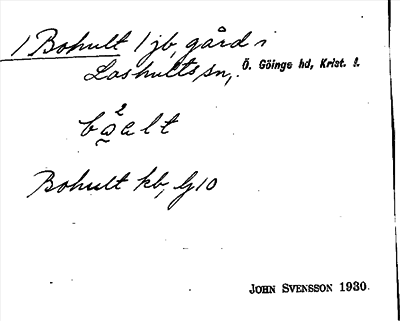 1 Bohult 1 jb, gård i
Loshults sn, Ö. Göinge hd, Krist. l.
Bohult kb, Gj 10
JOHN SVENSSON 1930.